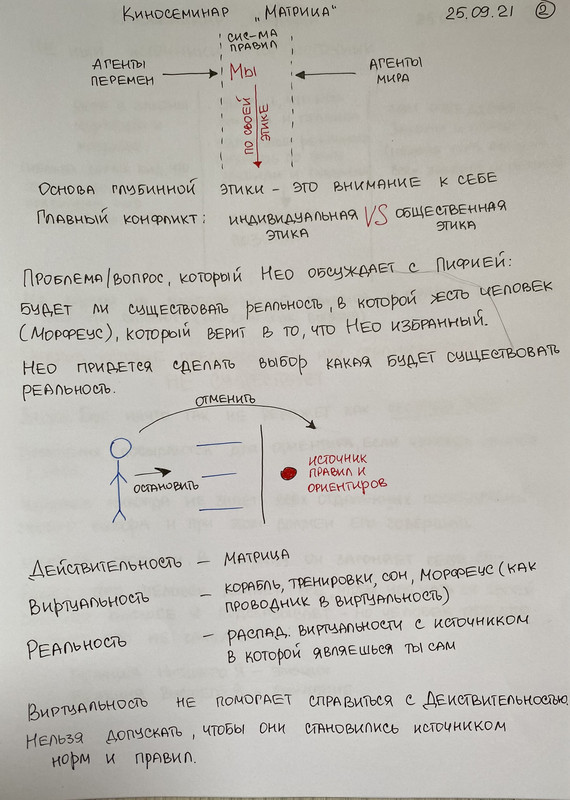 Киносеминар „Матрица"
25.09.21 2
сис-ма
правил
Агенты
перемен
Мы
Агенты
мира
по своей
этике
Основа глубинной этики – это внимание к себе
Главный конфликт: индивидуальная VS общественная
этика этика
Проблема/вопрос, который Нео обсуждает с Пифией:
будет ли существовать реальность, в которой жесть человек
(Морфеус), который верит в то, что Нео избранный.
Нео придется сделать выбор какая будет существовать
реальность.
отменить
остановить
источник
правил и
ориентиров
Действительность – матрица
Виртуальность – корабль, тренировки, сон, Морфеус (как
проводник в виртуальность)
Реальность – распад. виртуальности с источником
в которой являешься ты сам
Виртуальность не помогает справиться с Действительностью.
Нельзя допускать, чтобы они становились источником
норм и правил.